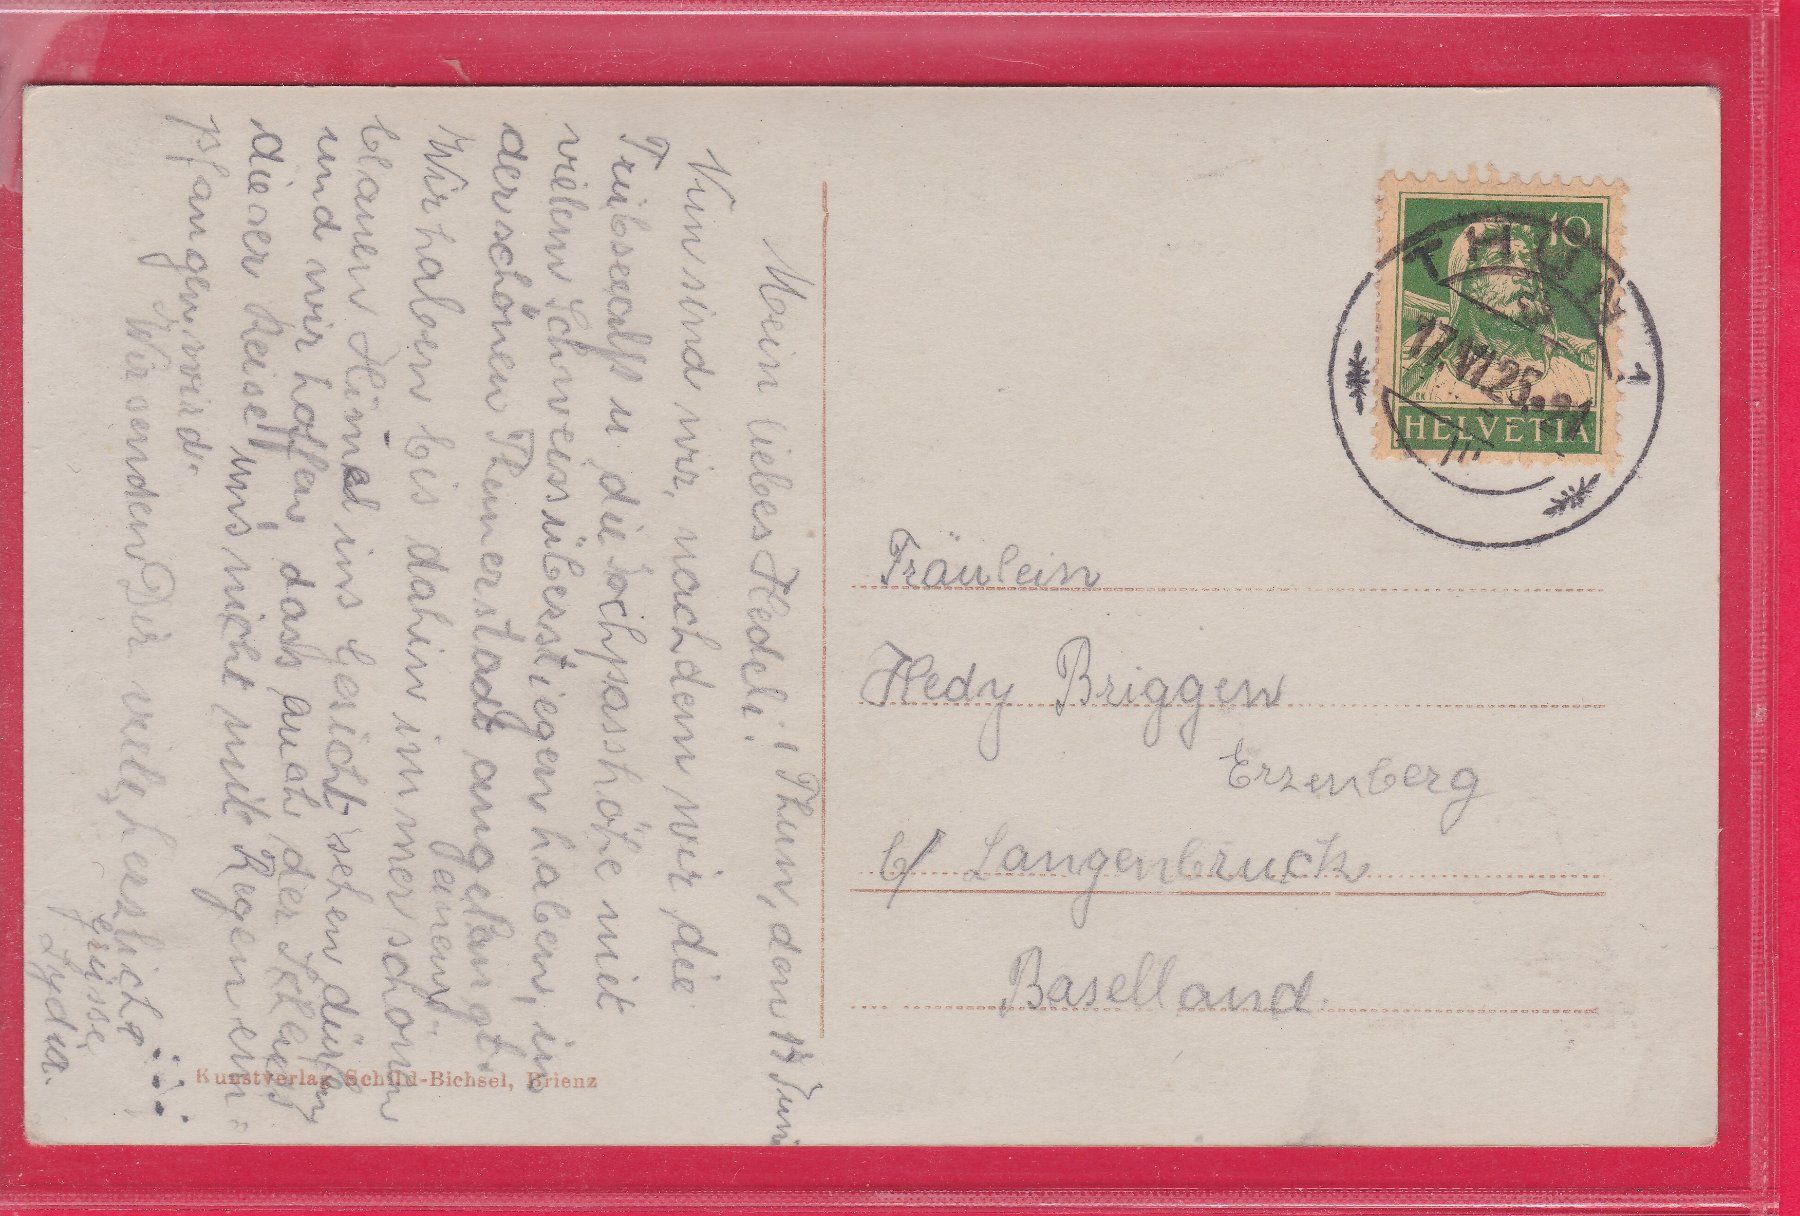 Thun, den 17 Juni
Mein liebes Hedeli!
Nun sind wir, nachdem wir die
Trübseealp u die Jochpasshöhe mit
vielem Schweiss überstiegen haben, in
der schönen Thunerstadt angelangt.
Wir haben bis dahin immer schönen
blauen Himmel ins Gesicht sehen dürfen
und wir hoffen dass auch der Schluss
dieser Reise uns nicht mit Regen em=
pfangen wird.
Wir senden Dir viele, herzliche
Grüsse
Lydia.
Kunstverlag Schild-Bichsel, Brienz
10
HELVETIA
THUN 1
17.VI.25.-21
Fräulein
Hedy Briggen
Erzenberg
b/ Langenbruck
Baselland